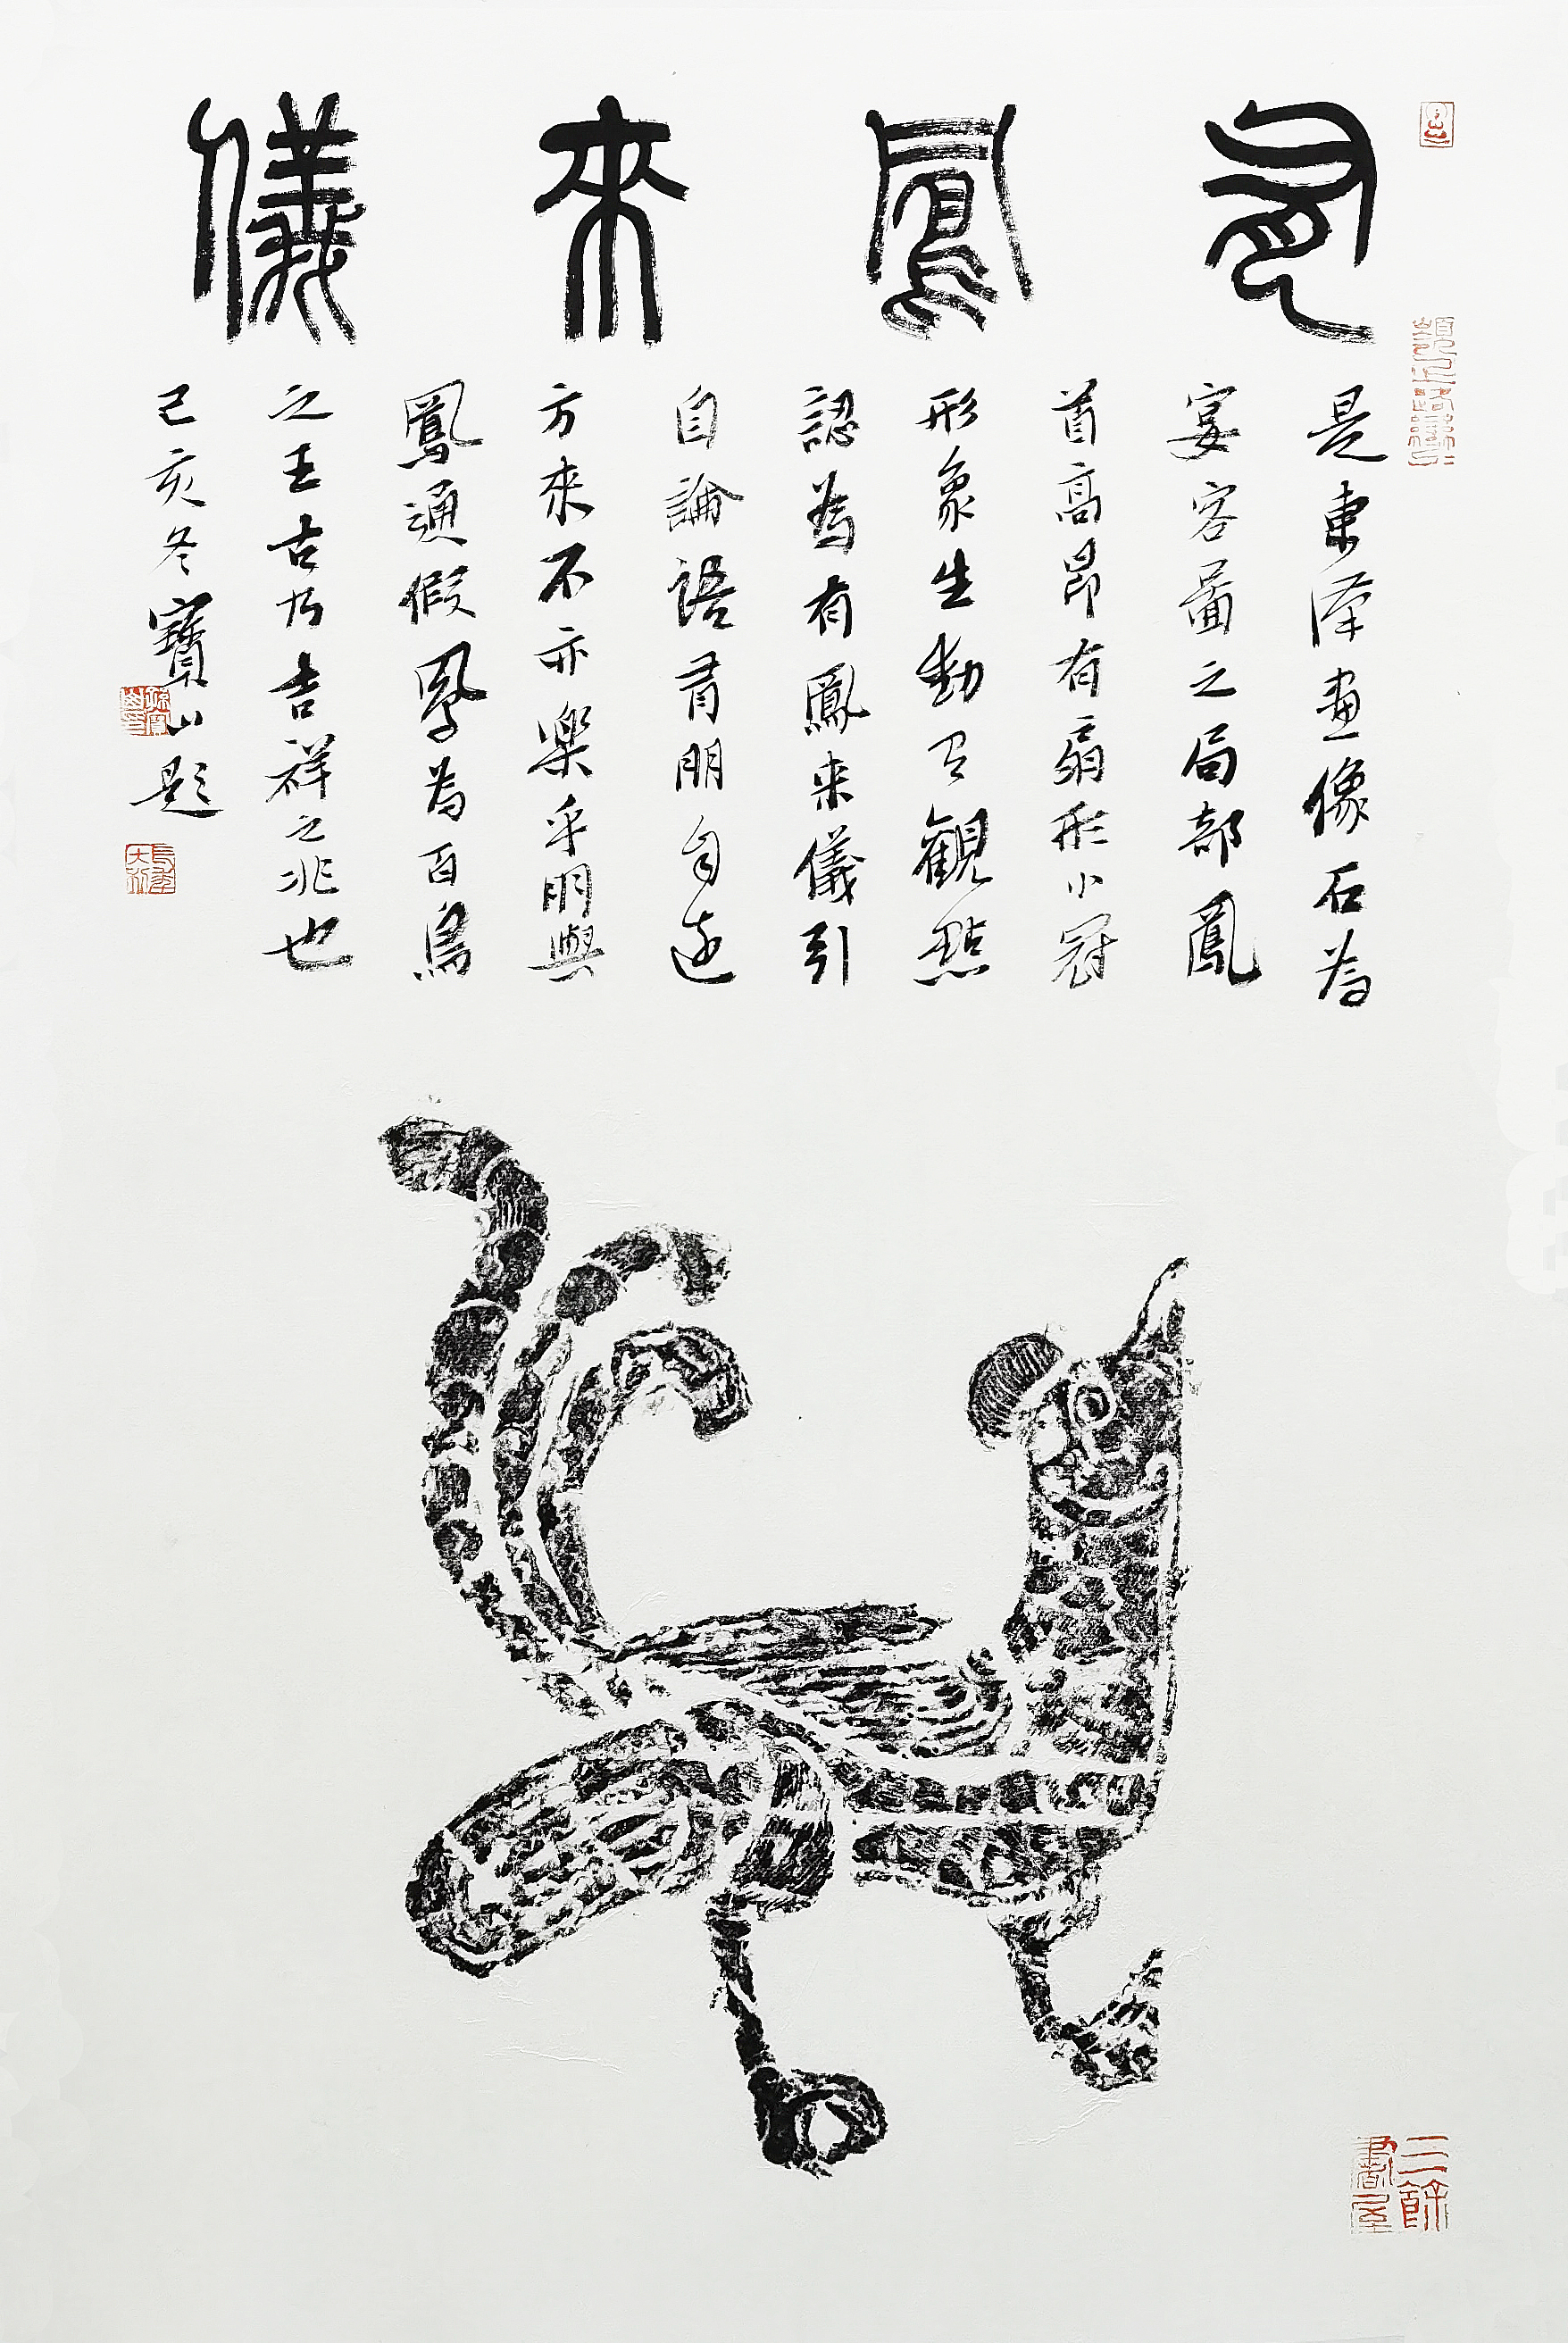 有鳳來儀
是東漢畫像石為
宴客圖之局部鳳
首高昂有扇形小冠
形象生動有觀點
認為有鳳來儀引
自論語有朋自遠
方來不亦樂乎朋與
鳳通假鳳為百鳥
之王古乃吉祥之兆也
己亥冬寶山題
三餘書屋